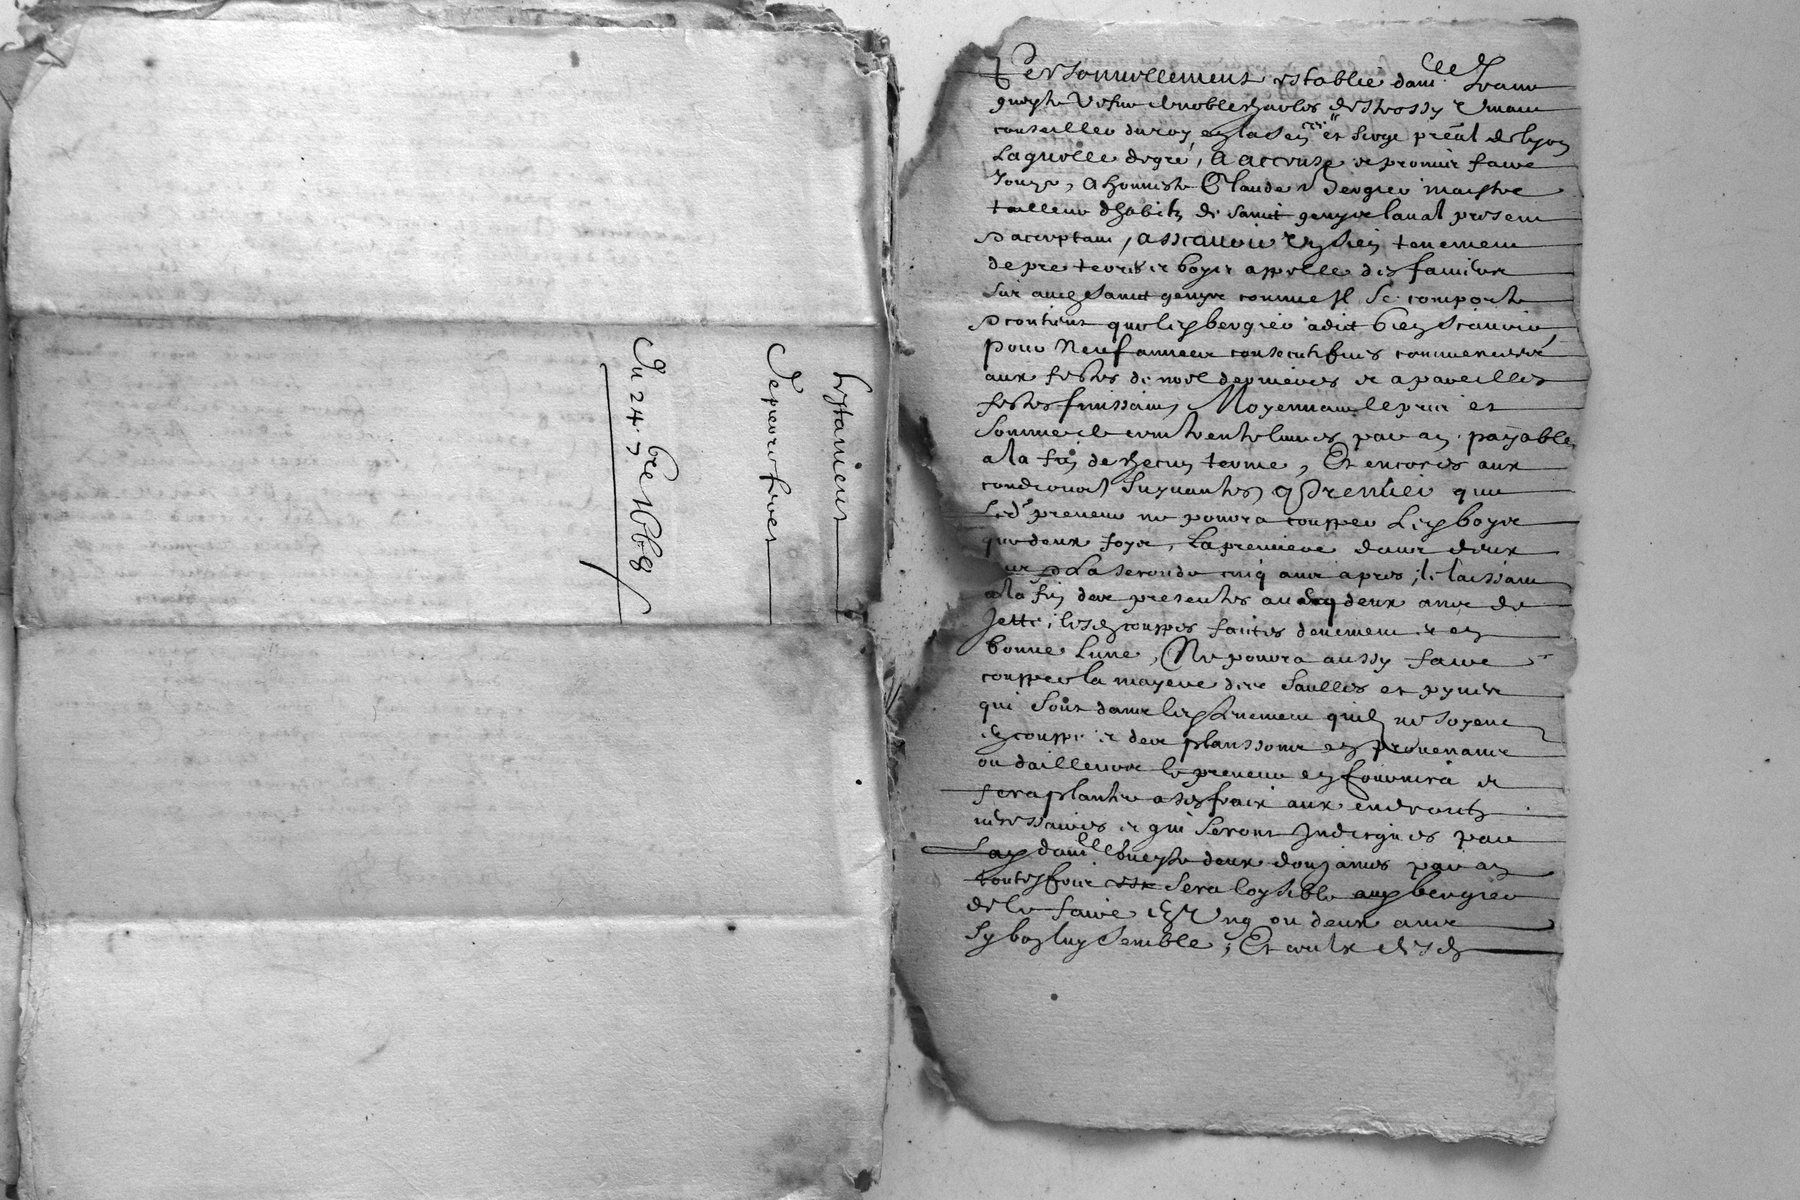 Testament
De pierre fives
Du 24 7bre 1668
Personnellement establie dam.elle Jeanne
vefve de noble Charles de
conseiller du roy en la sen.cee et siege preal de lyon
Laquelle de gré, A accensé et promis faire
Jouyr, a honneste Claude Bergier maistre
tailleur dhabitz de sainct genys laval present
& acceptant, Assavoir Ung sien tenement
de pre terres et boys appelle des
sis audit sainct genys comme Il se comporte
& contient que ledit bergier a dict bien scavoir
pour Neuf années consecutifves commencées
aux festes de noel dernieres et a pareilles
festes finissans, Moyennant le pris et
somme de cent trente livres par an payable
a la fin de chacun terme, Et encores aux
conditions suyvantes Premier que
Led. preneur ne pourra coupper Lesd boys
que deux foys, La premiere dans deux
ans & La seconde cinq ans apres, Et laissant
a la fin des presentes ausd deux ans de
Jette, lesd couppes faites deuement et en
bonne Lune, Ne pourra aussy faire
coupper la des saulles et
qui sont dans led tenement quilz ne soyent
en couppe et des planssons en provenans
ou dailleurs le preneur en fournira et
fera planter a ses frais aux endroitz
necessaires et qui seront Indicques par
Lad dam.elle deux douzaines par an
toutesfois sera loysible aud bergier
de le faire en Ung ou deux ans
sy bon luy semble, Et